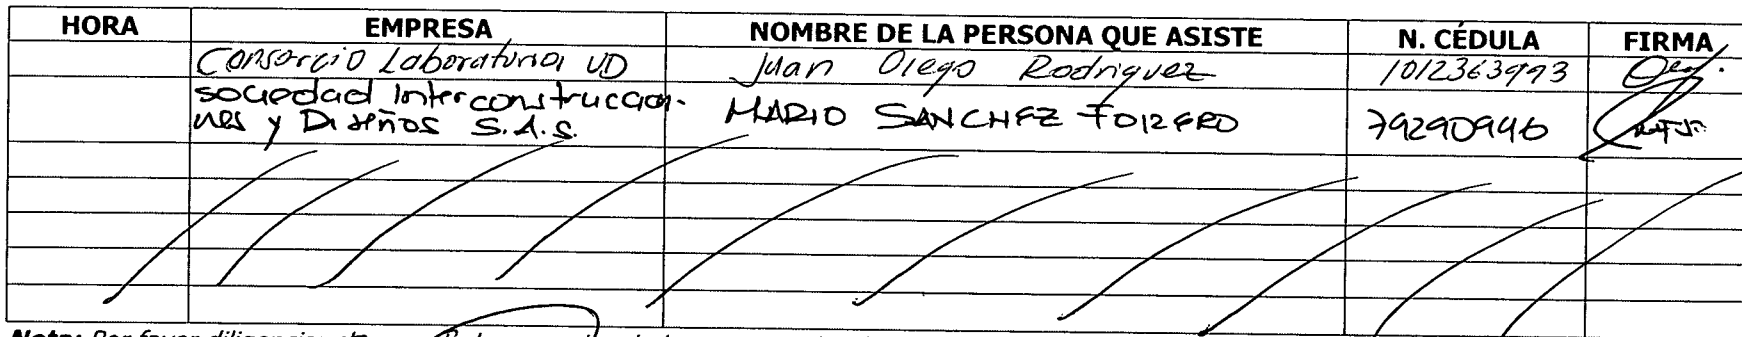 HORA EMPRESA NOMBRE DE LA PERSONA QUE ASISTE N. CÉDULA FIRMA
Consorcio Laboratorios UD Juan Diego Rodriguez
sociedad Interconstruccio-
nes y Diseños S.A.S. MARIO SANCHEZ FORERO 79290946
Nota: Por favor